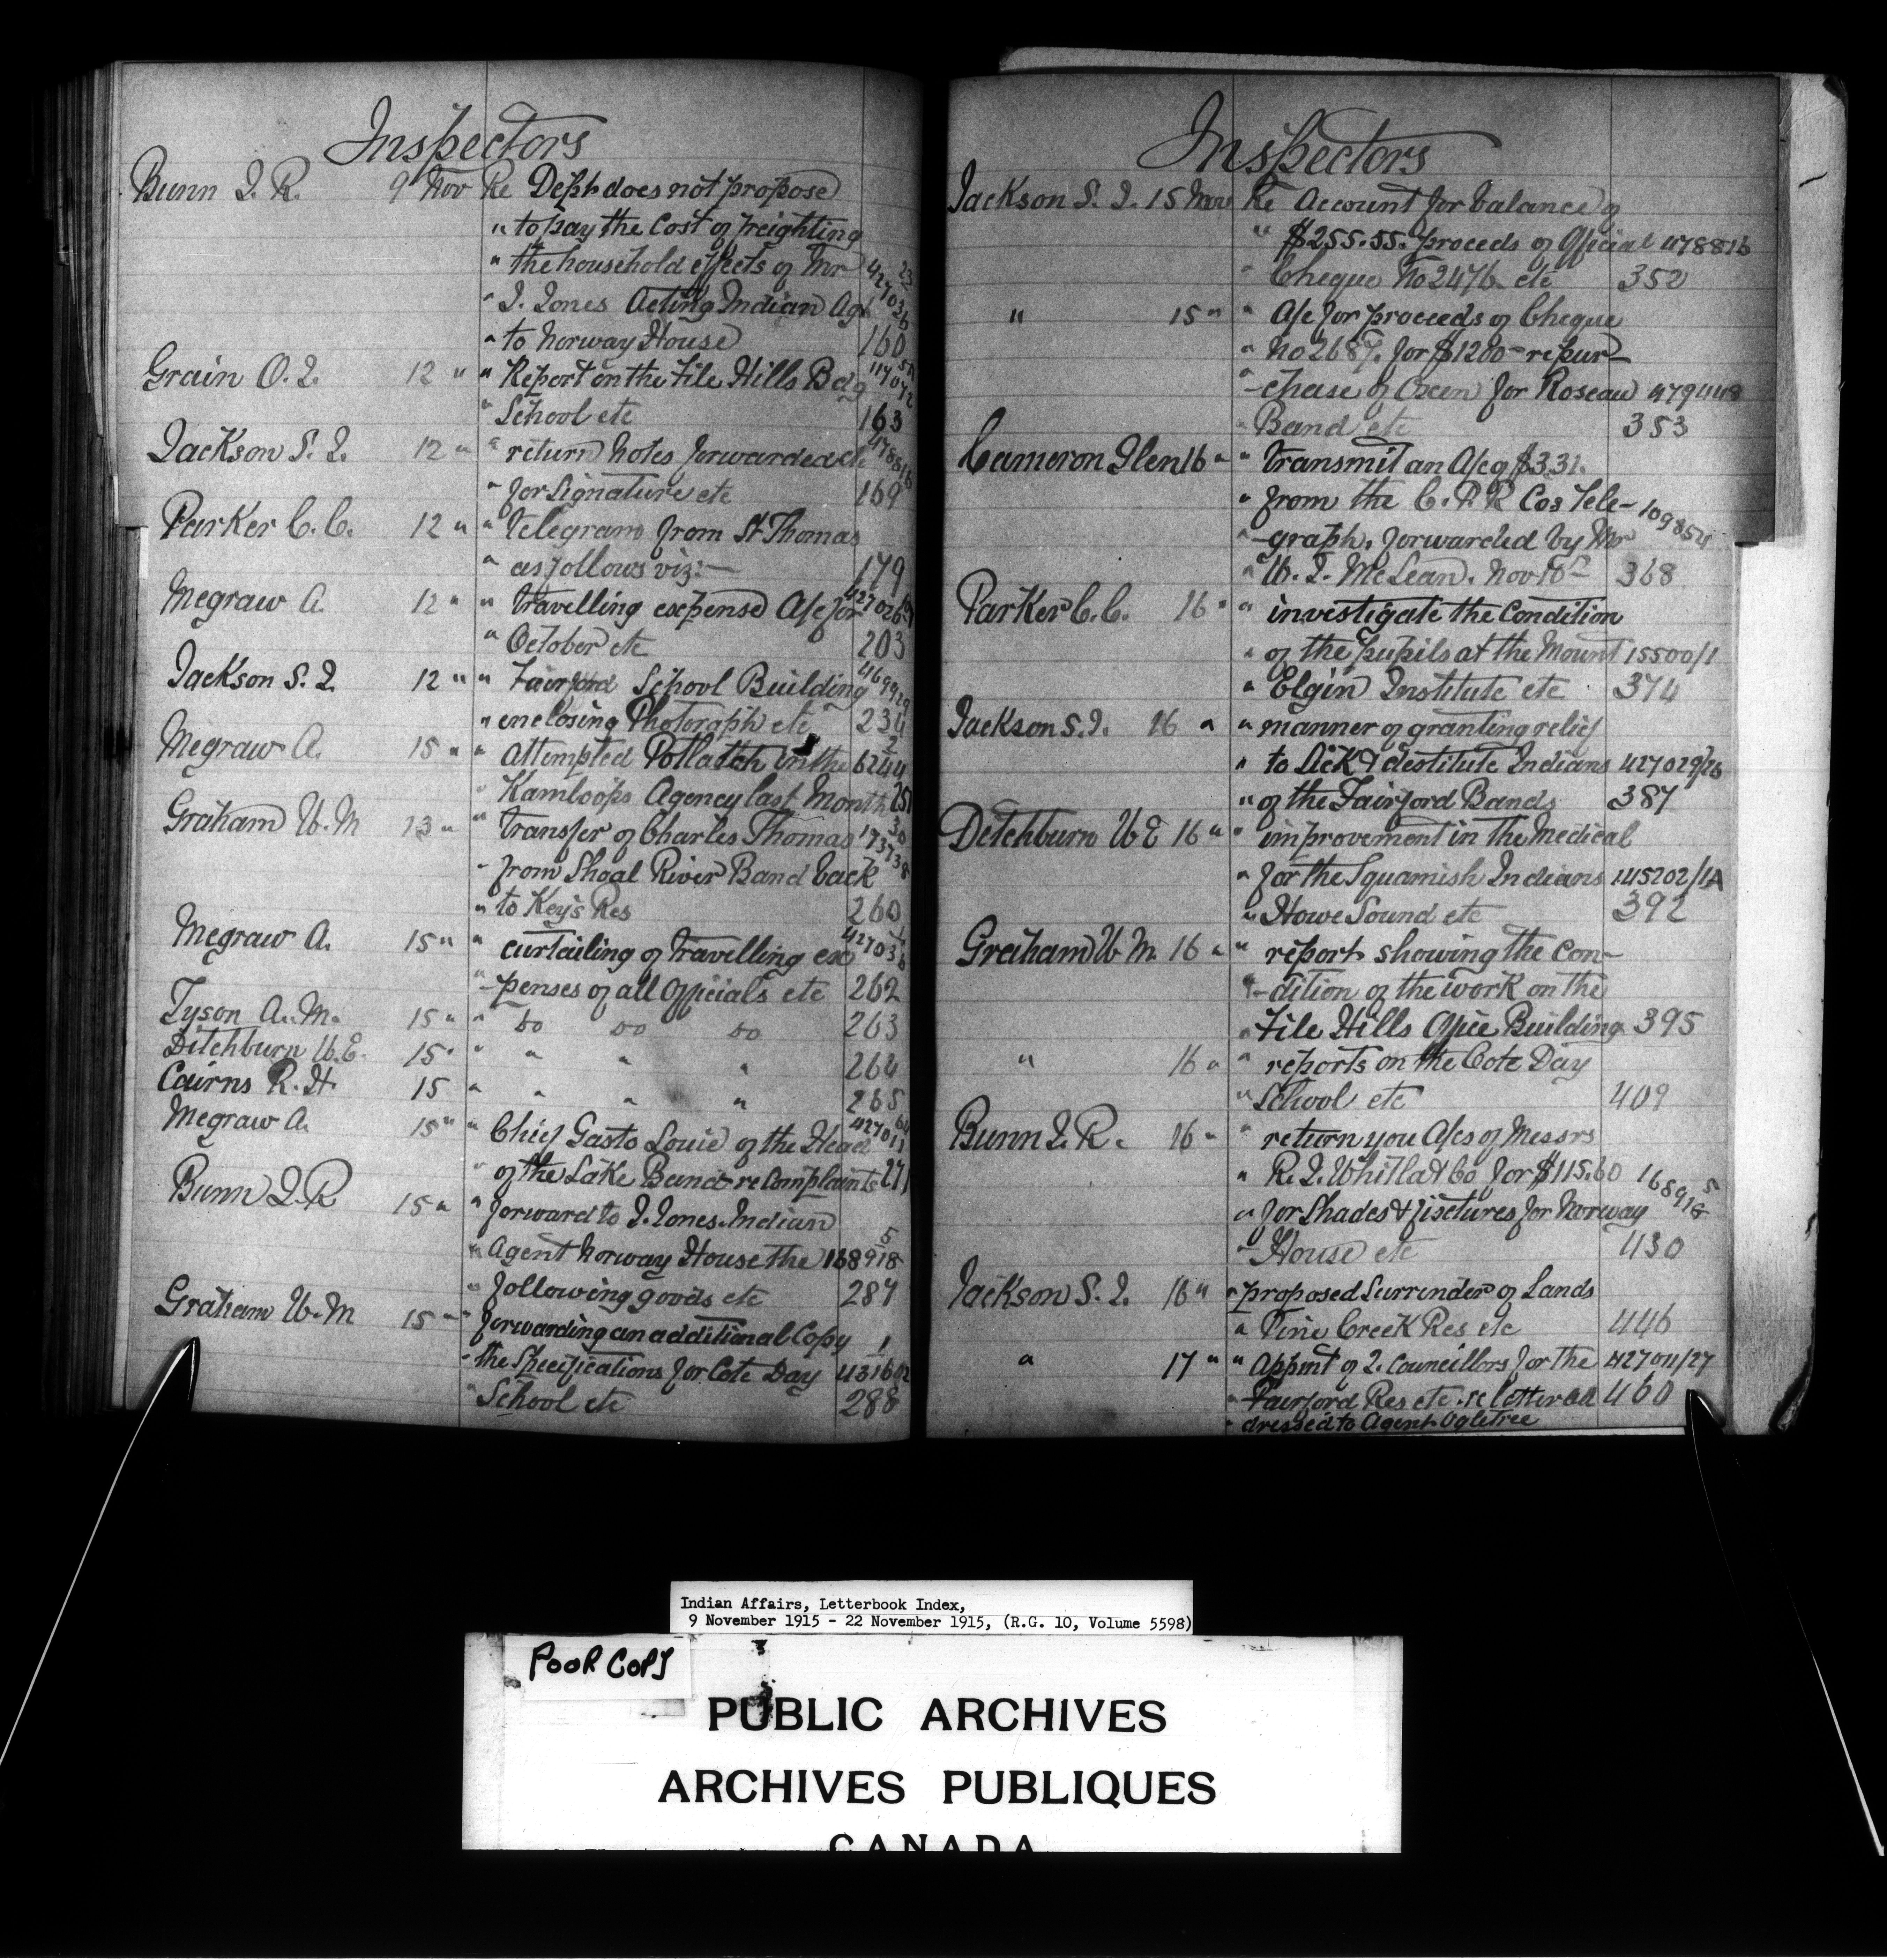 Inspectors
Bunn J. R. 9 Nov Re Dept does not propose
" to pay the Cost of freighting
" the household effects of Mr 427026
" J. Jones Acting Indian Agt
" to Norway House 160
Grain O. I. 12 " " Report on the File Hills Bdg
" School etc 163
Jackson S. J. 12 " " return notes forwarded
" for Signature etc 169
Parker C. C. 12 " " telegram from St Thomas
" as follows viz:— 179
Megraw A. 12 " " travelling expense A/c for
" October etc 203
Jackson S. J. 12 " " Fairford School Building
" enclosing Photograph etc 234
Megraw A. 15 " " Attempted Potlatch in the 6244
" Kamloops Agency last Month 251
Graham W. M 13 " " transfer of Charles Thomas
" from Shoal River Band back
" to Key's Res 260
Megraw A. 15 " " curtailing of travelling ex
" -penses of all Officials etc 262
Tyson A. M. 15 " " do do do 263
Ditchburn W. E. 15 " " " " " 264
Cairns R. H. 15 " " " " 265
Megraw A. 15 " " Chief Gasto Louie of the Head
" of the Lake Band re Complaints 271
Bunn J. R 15 " " forward to J. Jones Indian
" Agent Norway House the 168918/5
" following goods etc 287
Graham W. M 15 " forwarding an additional Copy
" the Specifications for Cote Day
" School etc 288
Inspectors
Jackson S. J. 15 Nov Re Account for balance of
" $255.55. proceeds of Official 478816
" Cheque No 2476 etc 352
" 15 " " A/c for proceeds of Cheque
" No 2687. for $1200 – repur
" -chase of Oxen for Roseau 479448
" Band etc 353
Cameron Glen 16 " " transmit an A/c of $3.31.
" from the C. P. R Cos Tele- 109854
" -graph. forwarded by Mr
" W. J. McLean. Nov 10th 368
Parker C. C. 16 " " investigate the Condition
" of the pupils at the Mount 15500/1
" Elgin Institute etc 374
Jackson S. J. 16 " " manner of granting relief
" to Sick & destitute Indians 427029/26
" of the Fairford Bands 387
Ditchburn W E 16 " " improvement in the Medical
" for the Squamish Indians 145202/1A
" Howe Sound etc 392
Graham W. M. 16 " " report showing the Con-
" -dition of the work on the
" File Hills Office Building 395
" 16 " " reports on the Cote Day
" School etc 409
Bunn J. R. 16 " " return you A/cs of Messrs
" R. J. Whitla & Co for $115.60 168918/5
" for Shades & fixtures for Norway
" House etc 430
Jackson S. J. 16 " " proposed Surrender of Lands
" Pine Creek Res etc 446
" 17 " " Appmt of 2. Councillors for the 427011/27
" Fairford Res etc. re letter ad 460
" dressed to Agent Ogletree
Indian Affairs, Letterbook Index,
9 November 1915 - 22 November 1915, (R.G. 10, Volume 5598)
POOR COPY
PUBLIC ARCHIVES
ARCHIVES PUBLIQUES
CANADA